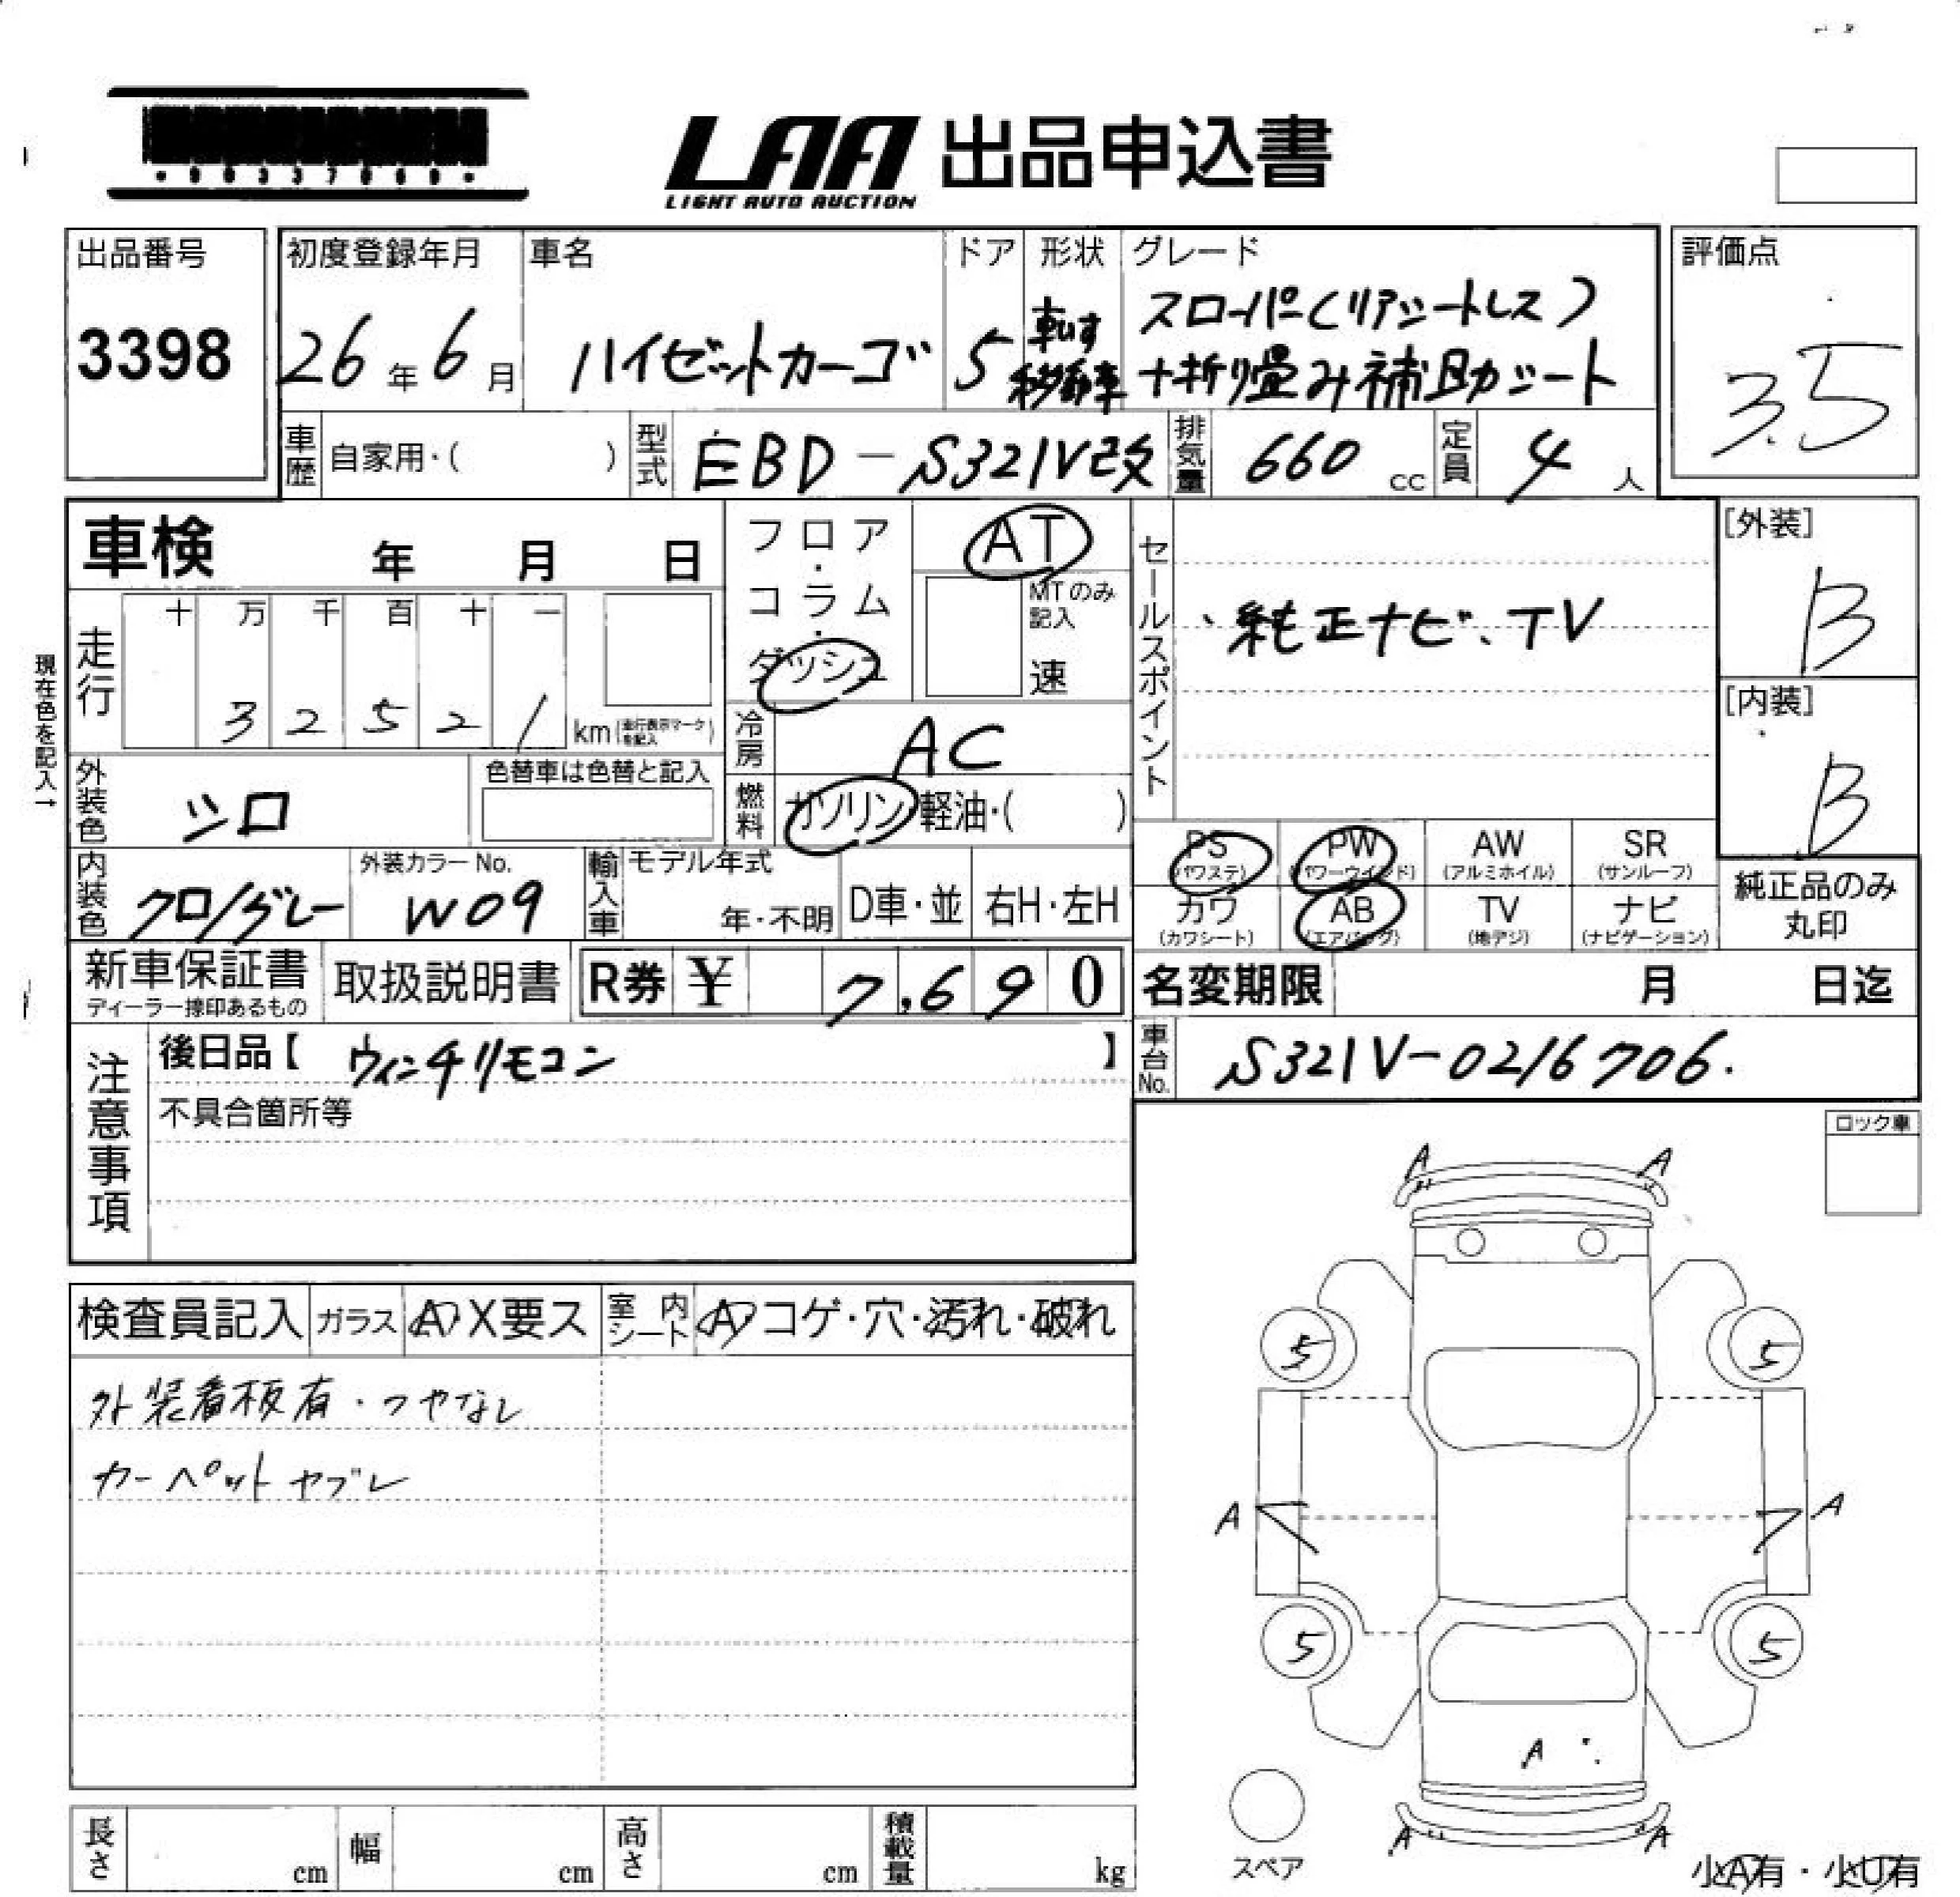 LAA 出品申込書
LIGHT AUTO AUCTION
出品番号
3398
初度登録年月
26年6月
車名
ハイゼットカーゴ
ドア
5
形状
車いす
移動車
グレード
スローパー(リアシートレス)
+折り畳み補助シート
評価点
3.5
車歴 自家用・( )
型式 EBD-S321V改
排気量 660 cc
定員 4 人
車検 年 月 日
フロア・コラム・ダッシュ
AT
MTのみ記入
速
セールスポイント
、純正ナビ、TV
[外装]
B
[内装]
B
現在色を記入→
走行
十 万 千 百 十 一
3 2 5 2 1 km (走行表示マークを記入)
冷房 AC
燃料 ガソリン・軽油・( )
外装色 シロ
色替車は色替と記入
内装色 クロ/グレー
外装カラーNo.
W09
輸入車
モデル年式
年・不明
D車・並
右H・左H
PS (パワステ)
PW (パワーウインド)
AW (アルミホイル)
SR (サンルーフ)
カワ (カワシート)
AB (エアバッグ)
TV (地デジ)
ナビ (ナビゲーション)
純正品のみ
丸印
新車保証書
ディーラー捺印あるもの
取扱説明書
R券 ¥ 7,690
名変期限 月 日迄
注意事項
後日品【 ウィンチリモコン 】
不具合箇所等
車台No. S321V-0216706.
ロック車
検査員記入
ガラス A X要ス
室内シート A コゲ・穴・汚れ・破れ
外装着板有・つやなし
カーペットヤブレ
A A
5 5
A A
5 5
A
A A
スペア
小A有・小U有
長さ cm
幅 cm
高さ cm
積載量 kg